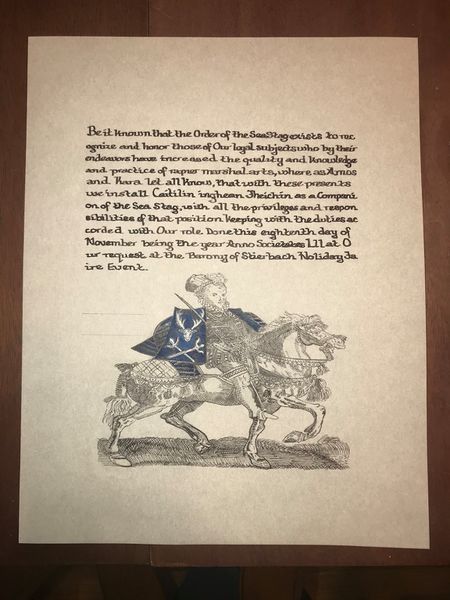 Be it known that the Order of the Sea Stag exists to rec
ognize and honor those of Our loyal subjects who by their
endeavors have increased the quality and knowledge
and practice of rapier marshal arts, where as Arnos
and Kara let all know, that with these presents
we install Caitilin inghean Fheichin as a Compani
on of the Sea Stag, with all the privileges and respon
sibilities of that position keeping with the duties ac
corded with Our role. Done this eighteenth day of
November being the year Anno Societates LII at O
ur request at the Barony of Stierbach Holiday fa
ire Event.